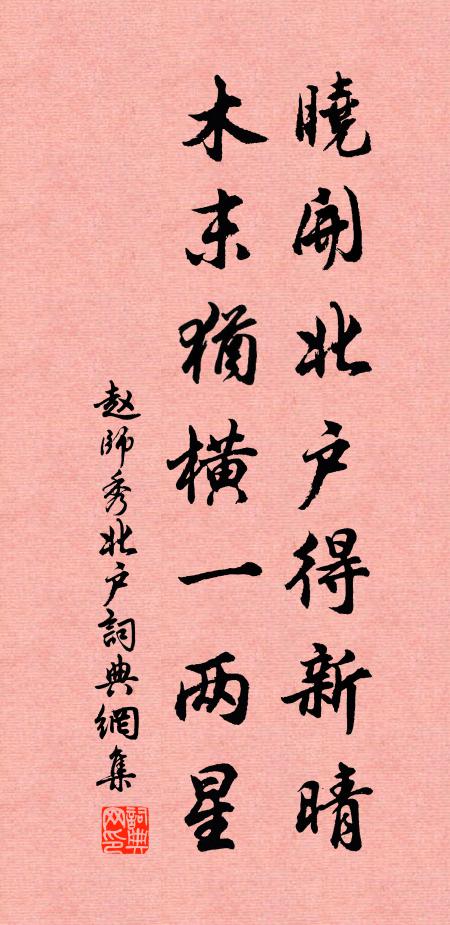 曉開北户得新晴
木末猶橫一两星
赵師秀北户詞典網集
詞典网印